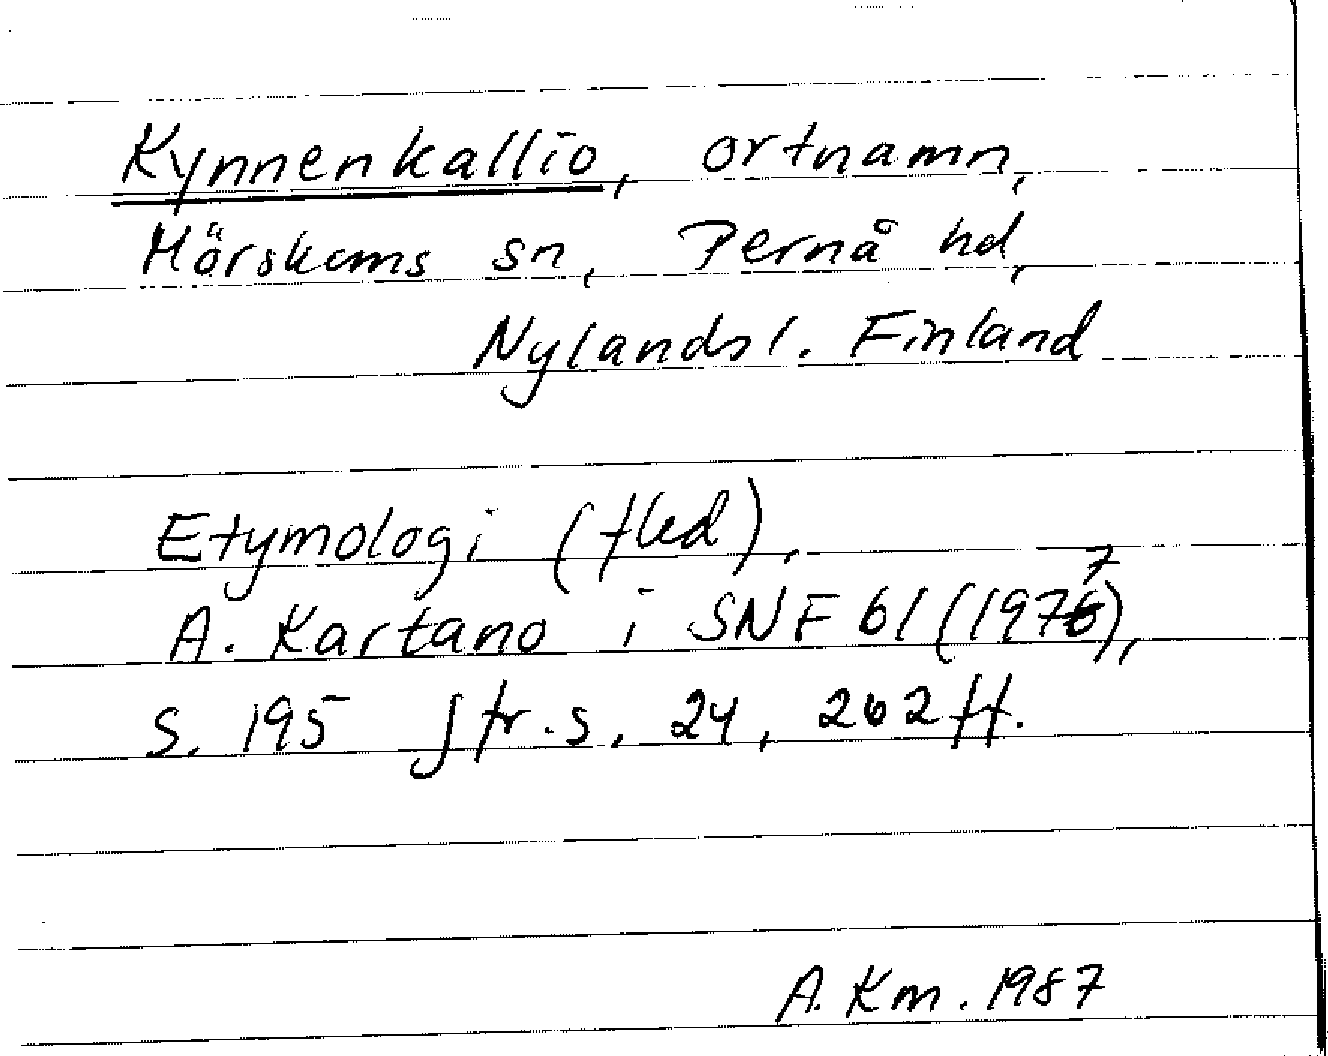 Kynnenkallio, ortnamn,
Mörskoms sn, Pernå hd,
Nylandsl. Finland
Etymologi (fled).
A. Kartano i SNF 61 (1977),
S. 195 jfr. s. 24, 262 ff.
A. Km. 1987